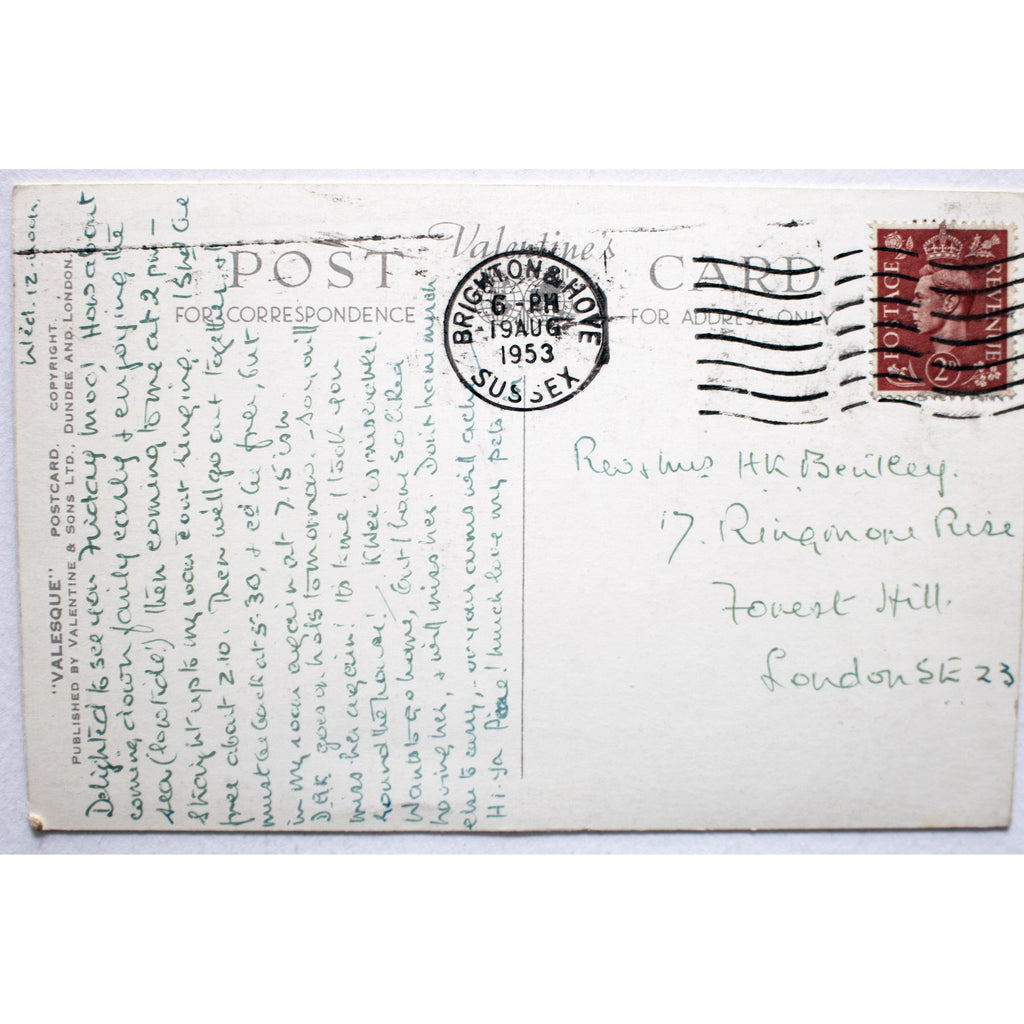 Valentine's
POST CARD
FOR CORRESPONDENCE
FOR ADDRESS ONLY
"VALESQUE" POSTCARD. COPYRIGHT.
PUBLISHED BY VALENTINE & SONS LTD., DUNDEE AND LONDON.
BRIGHTON & HOVE
6 - PM
19 AUG
1953
SUSSEX
POSTAGE
REVENUE
2D
Wed. 12 noon.
Delighted to see you Friday mod! How about
coming down fairly early & enjoying the
sea (low tide!) then coming to me at 2 pm -
Straight up to my room don't ringing. I shd be
free about 2.10. Then we'll go out together, I
must be back at 5-30, & ed be free, but
in my room again at 7.15 ish
goes on hols tomorrow - so you'll
miss her again! Its time I took you
round the house! is miserable!
Wants to go home, but I have so liked
having her, & will miss her. Don't have much
else to carry, - or your arms will ache
Hi-ya much love my pets
Rev & Mrs HK Bentley.
17. Ringmore Rise
Forest Hill.
London SE 23